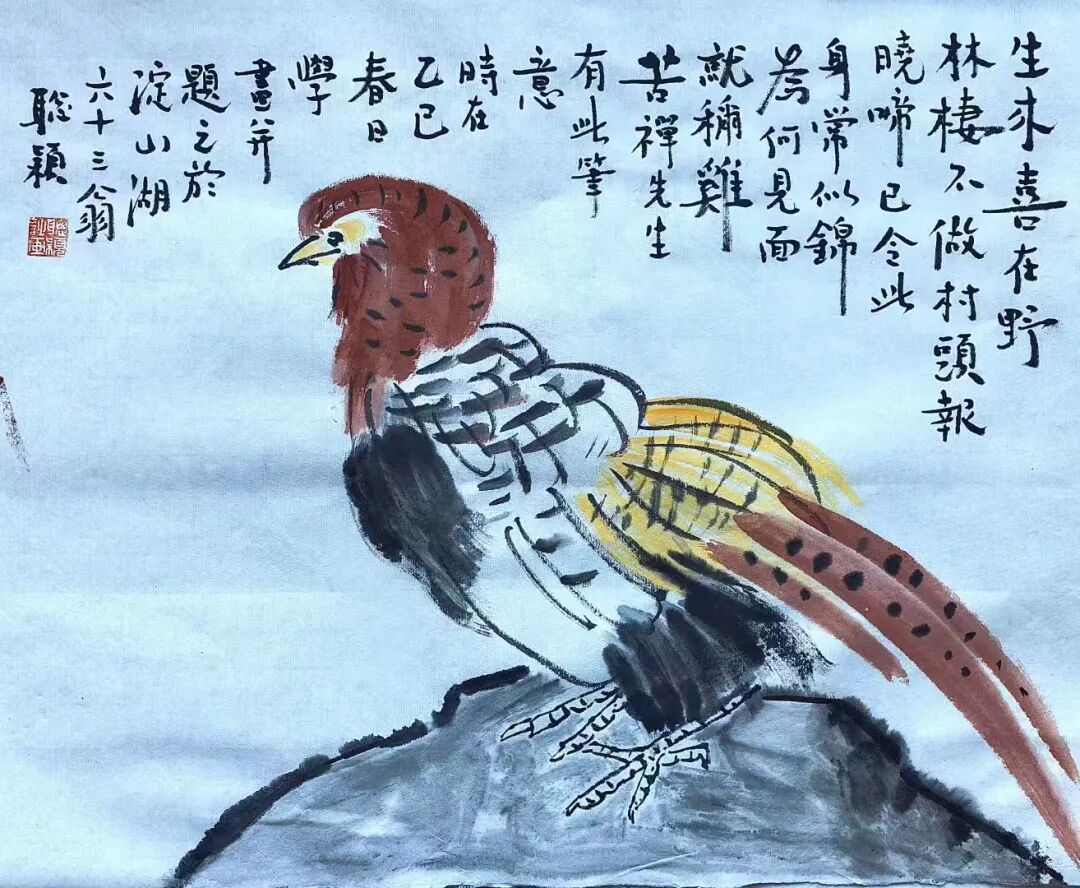 生来喜在野
林棲不做村頭報
曉啼已令此
身常似錦
為何見面
就稱雞
苦禪先生
有此筆
意
時在
乙巳
春日
學
畫并
題之於
淀山湖
六十三翁
聰穎